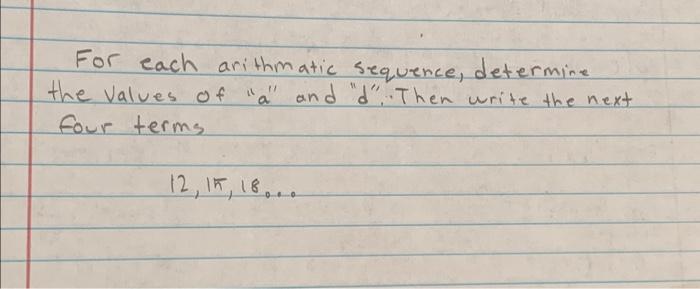 For each arithmatic sequence, determine
the values of "a" and "d". Then write the next
four terms
12, 15, 18...